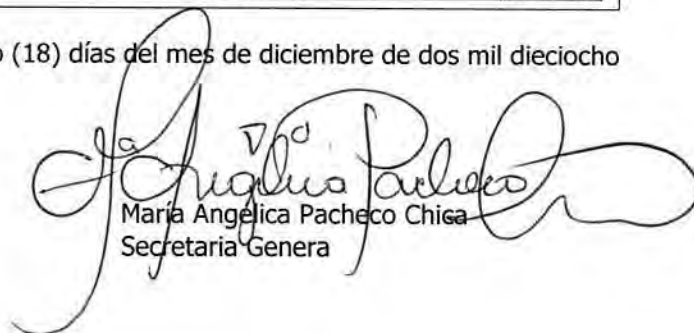 o (18) días del mes de diciembre de dos mil dieciocho
Mª Angélica Pacheco
María Angélica Pacheco Chica
Secretaria Genera